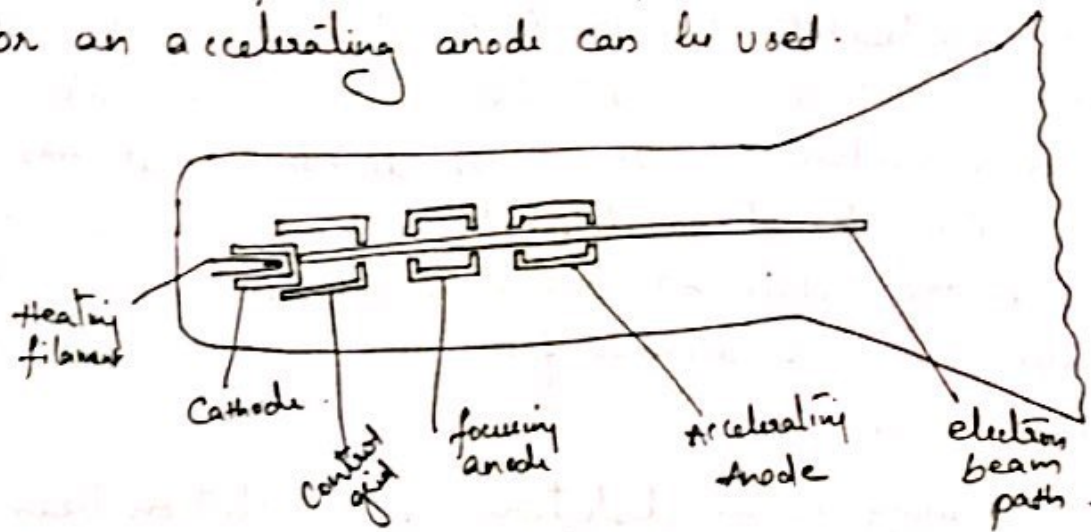 or an accelerating anode can be used.
Heating
filament
Cathode
Control
grid
focusing
anode
Accelerating
Anode
electron
beam
path.